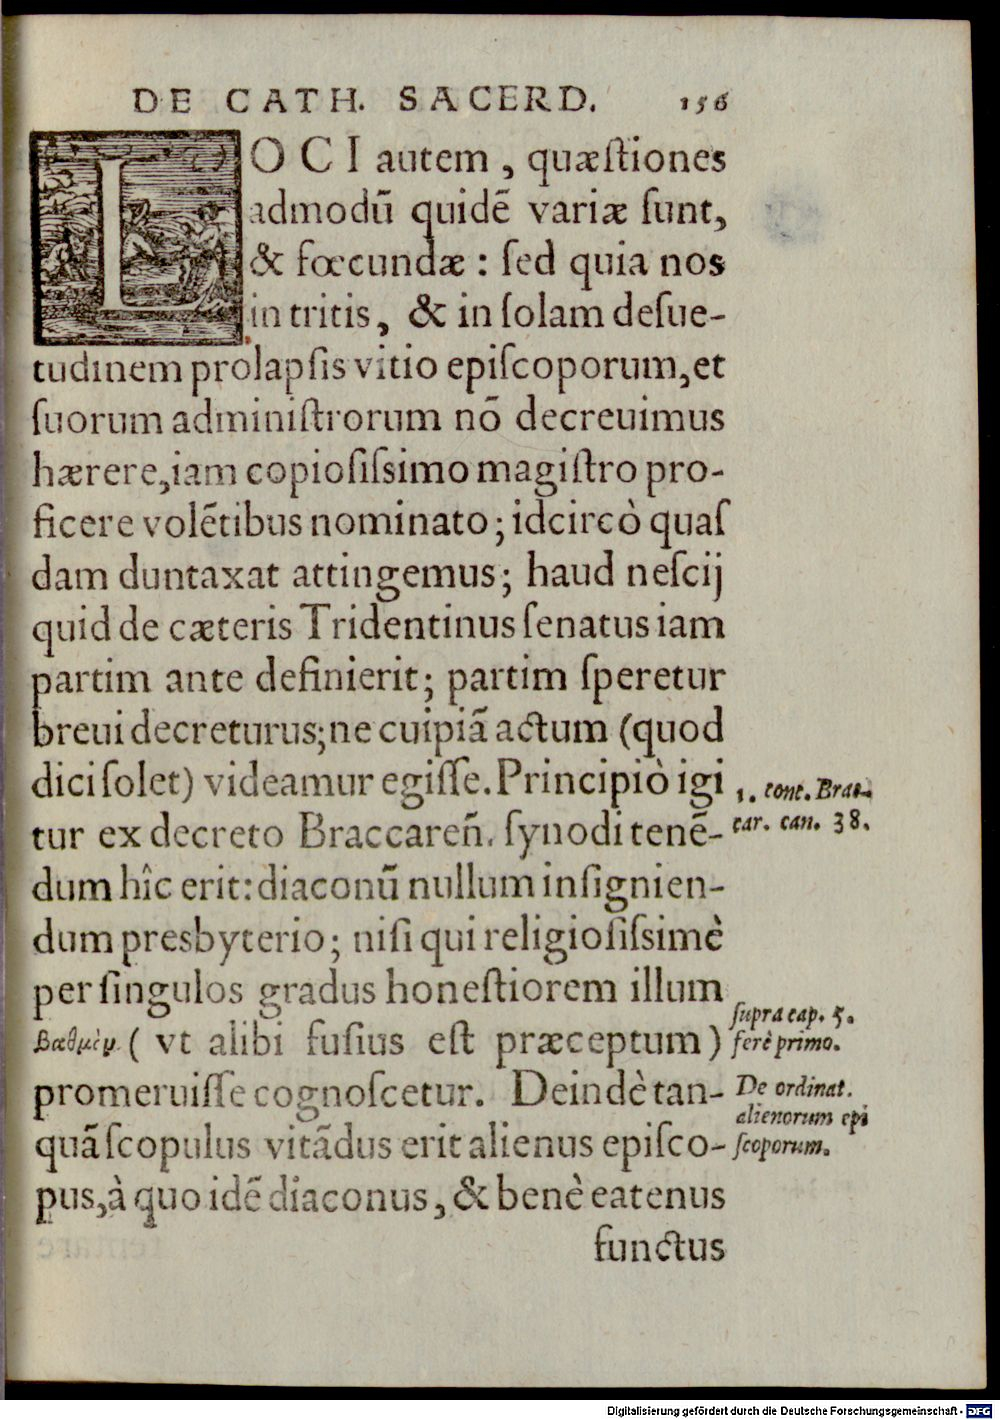 DE CATH. SACERD. 156
LOCI autem, quæſtiones
admodū quidē variæ ſunt,
& fœcundæ: ſed quia nos
in tritis, & in ſolam deſue-
tudinem prolapſis vitio epiſcoporum, et
ſuorum adminiſtrorum nō decreuimus
hærere, iam copioſiſsimo magiſtro pro-
ficere volētibus nominato; idcircò quaſ
dam duntaxat attingemus; haud neſcij
quid de cæteris Tridentinus ſenatus iam
partim ante definierit; partim ſperetur
breui decreturus; ne cuipiā actum (quod
dici ſolet) videamur egiſſe. Principiò igi
tur ex decreto Braccareñ. ſynodi tenē-
dum hîc erit: diaconū nullum inſignien-
dum presbyterio; niſi qui religioſiſsimè
per ſingulos gradus honeſtiorem illum
βαθμὸμ (vt alibi fuſius eſt præceptum)
promeruiſſe cognoſcetur. Deindè tan-
quā ſcopulus vitādus erit alienus epiſco-
pus, à quo idē diaconus, & benè eatenus
functus
1. conc. Brac-
car. can. 38.
ſupra cap. 5.
ferè primo.
De ordinat.
alienorum epi
ſcoporum.
Digitalisierung gefördert durch die Deutsche Forschungsgemeinschaft - DFG